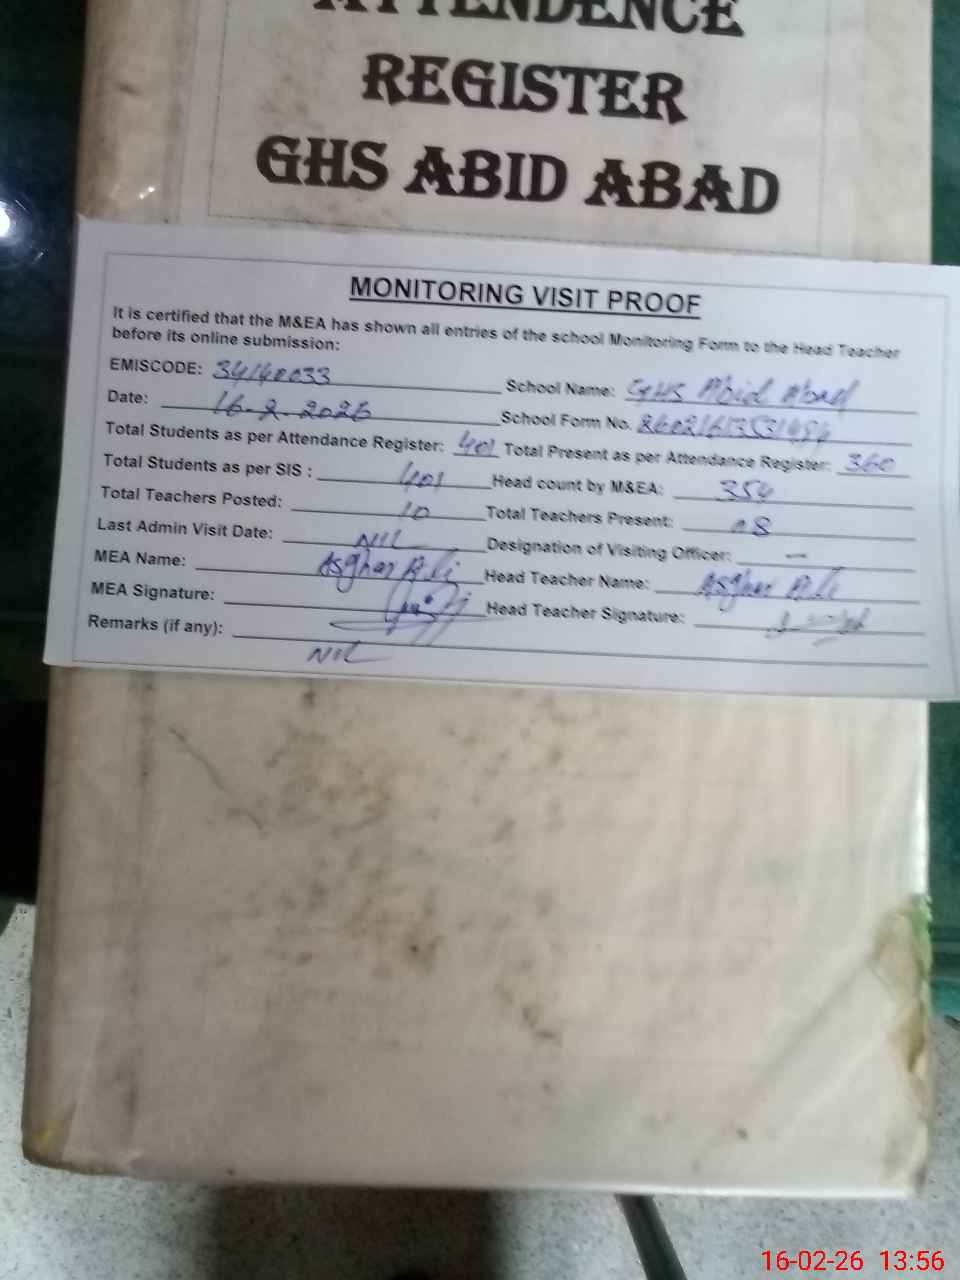 ATTENDENCE
REGISTER
GHS ABID ABAD
MONITORING VISIT PROOF
It is certified that the M&EA has shown all entries of the school Monitoring Form to the Head Teacher
before its online submission:
EMISCODE: 34140033 School Name: GHS Abid Abad
Date: 16-2-2026 School Form No.
Total Students as per Attendance Register: 401 Total Present as per Attendance Register: 360
Total Students as per SIS : 401 Head count by M&EA: 354
Total Teachers Posted: 10 Total Teachers Present: 08
Last Admin Visit Date: NIL Designation of Visiting Officer: —
MEA Name: Asghar Ali Head Teacher Name: Asghar Ali
MEA Signature: Head Teacher Signature:
Remarks (if any): NIL
16-02-26 13:56